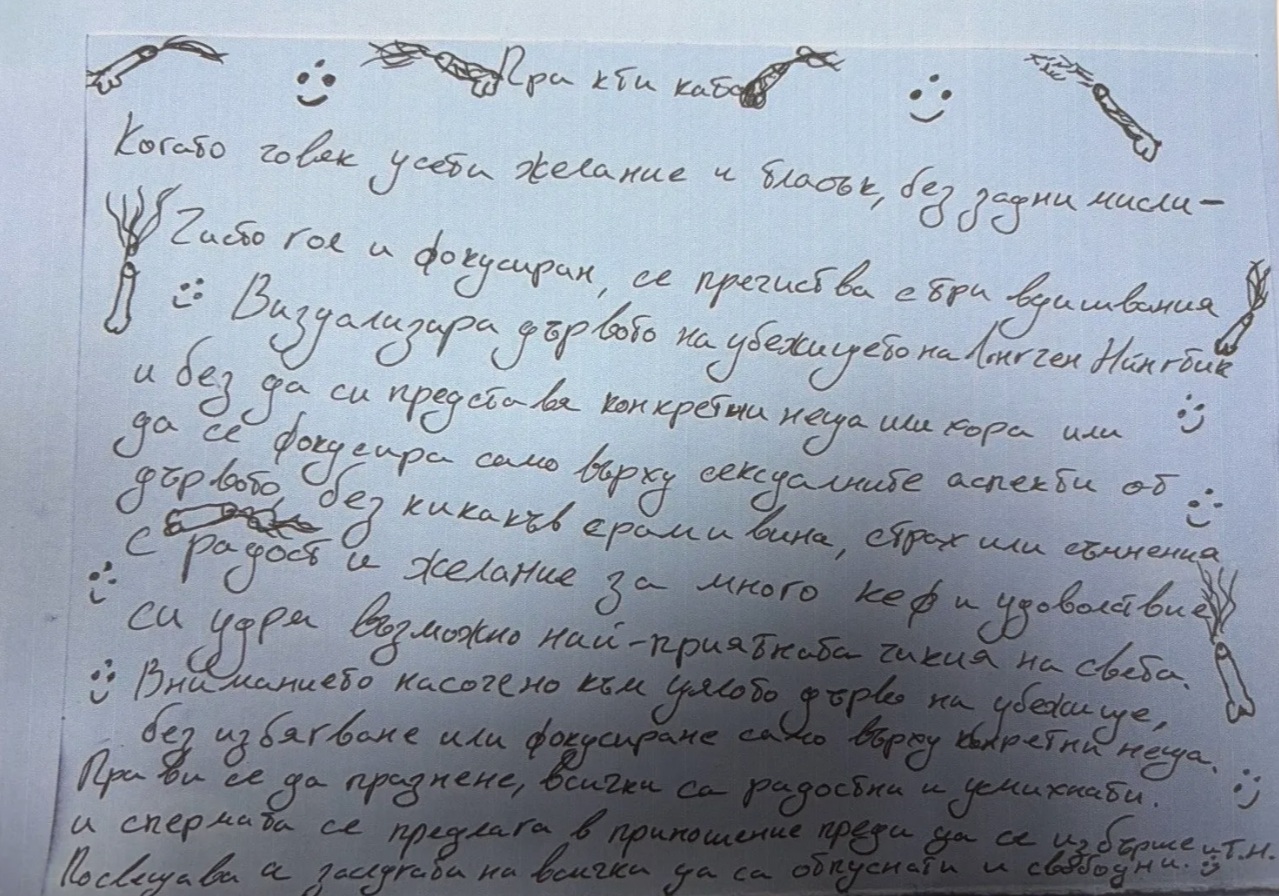 Практиката
Когато човек усети желание и тласък, без задни мисли –
Чисто гол и фокусиран, се пречиства с три вдишвания
Визуализира дървото на убежището на Лонгчен Нингтик
и без да си представя конкретни неща или хора или
да се фокусира само върху сексуалните аспекти от
дървото, без никакъв срам и вина, страх или съмнения
с радост и желание за много кеф и удоволствие
си удря възможно най-приятната чикия на света.
Вниманието насочено към цялото дърво на убежище,
без избягване или фокусиране само върху конкретни неща.
Прави се да празнене, всички са радостни и усмихнати.
и спермата се предлага в приношение преди да се избърше и т.н.
Посвещава се заслугата на всички да са отпуснати и свободни.